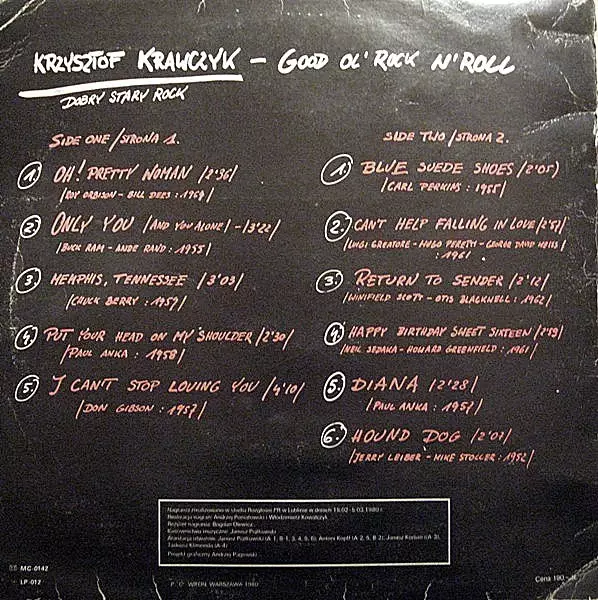 KRZYSZTOF KRAWCZYK – GOOD OL' ROCK N' ROLL
DOBRY STARY ROCK
SIDE ONE /STRONA 1.
1. OH! PRETTY WOMAN /2'36/
/ROY ORBISON – BILL DEES : 1964/
2. ONLY YOU /AND YOU ALONE/ – /3'22/
/BUCK RAM – ANDE RAND : 1955/
3. MEMPHIS, TENNESSEE /3'03/
/CHUCK BERRY : 1957/
4. PUT YOUR HEAD ON MY SHOULDER /2'30/
/PAUL ANKA : 1958/
5. I CAN'T STOP LOVING YOU /4'10/
/DON GIBSON : 1957/
SIDE TWO /STRONA 2.
1. BLUE SUEDE SHOES /2'05/
/CARL PERKINS : 1955/
2. CAN'T HELP FALLING IN LOVE
/LUIGI CREATORE – HUGO PERETTI – GEORGE DAVID WEISS/
: 1961/
3. RETURN TO SENDER /2'12/
/WINIFIELD SCOTT – OTIS BLACKWELL : 1962/
4. HAPPY BIRTHDAY SWEET SIXTEEN /2'59/
/NEIL SEDAKA – HOWARD GREENFIELD : 1961/
5. DIANA /2'28/
/PAUL ANKA : 1957/
6. HOUND DOG
/JERRY LEIBER – MIKE STOLLER : 1952/
Nagrania zrealizowano w studio Rozgłośni PR w Lublinie w dniach 15.02 - 5.03.1980 r.
Realizacja nagrań: Andrzej Poniatowski i Włodzimierz Kowalczyk
Reżyser nagrania: Bogdan Olewicz
Kierownictwo muzyczne: Janusz Piątkowski
Aranżacja utworów: Janusz Piątkowski (A 1, B 1, 3, 4, 5, 6), Antoni Kopff (A 2, 5, B 2), Janusz Koman (A 3),
Tadeusz Klimonda (A 4)
Projekt graficzny Andrzej Pągowski
MC-0142
LP-012
WIFON, WARSZAWA 1980
Cena 190.-